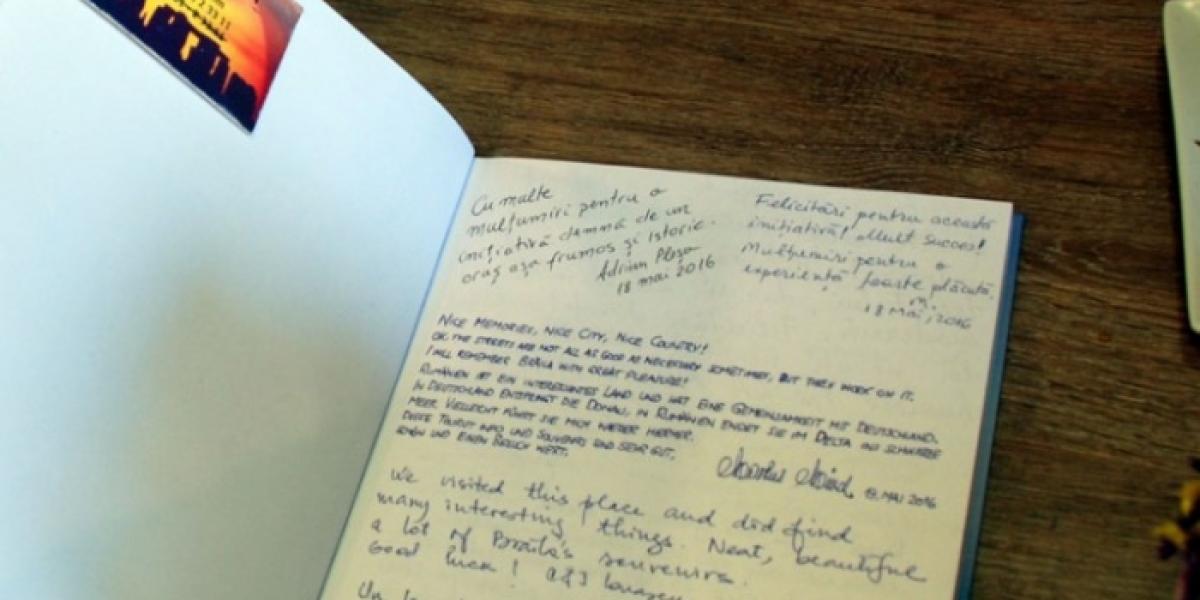 2 33 11
Cu multe
mulțumiri pentru o
inițiativă demnă de un
oraș așa frumos și istoric.
Adrian
18 mai 2016
Felicitări pentru această
inițiativă! Mult succes!
Mulțumiri pentru o
experiență foarte plăcută.
18 Mai, 2016
NICE MEMORIES, NICE CITY, NICE COUNTRY!
OK, THE STREETS ARE NOT ALL AS GOOD AS NECESSARY SOMETIMES, BUT THEY WORK ON IT.
I WILL REMEMBER BRĂILA WITH GREAT PLEASURE!
RUMÄNIEN IST EIN INTERESSANTES LAND UND HAT EINE GEMEINSAMKEIT MIT DEUTSCHLAND.
IN DEUTSCHLAND ENTSPRINGT DIE DONAU, IN RUMÄNIEN ENDET SIE IM DELTA INS SCHWARZE
MEER. VIELLEICHT FÜHRT SIE MICH WIEDER HIERHER.
DIESE TOURIST INFO UND SOUVENIRS SIND SEHR GUT,
SCHÖN UND EINEN BESUCH WERT.
18. MAI 2016
We visited this place and did find
many interesting things. Neat, beautiful
a lot of Braila's souvenirs.
Good luck!